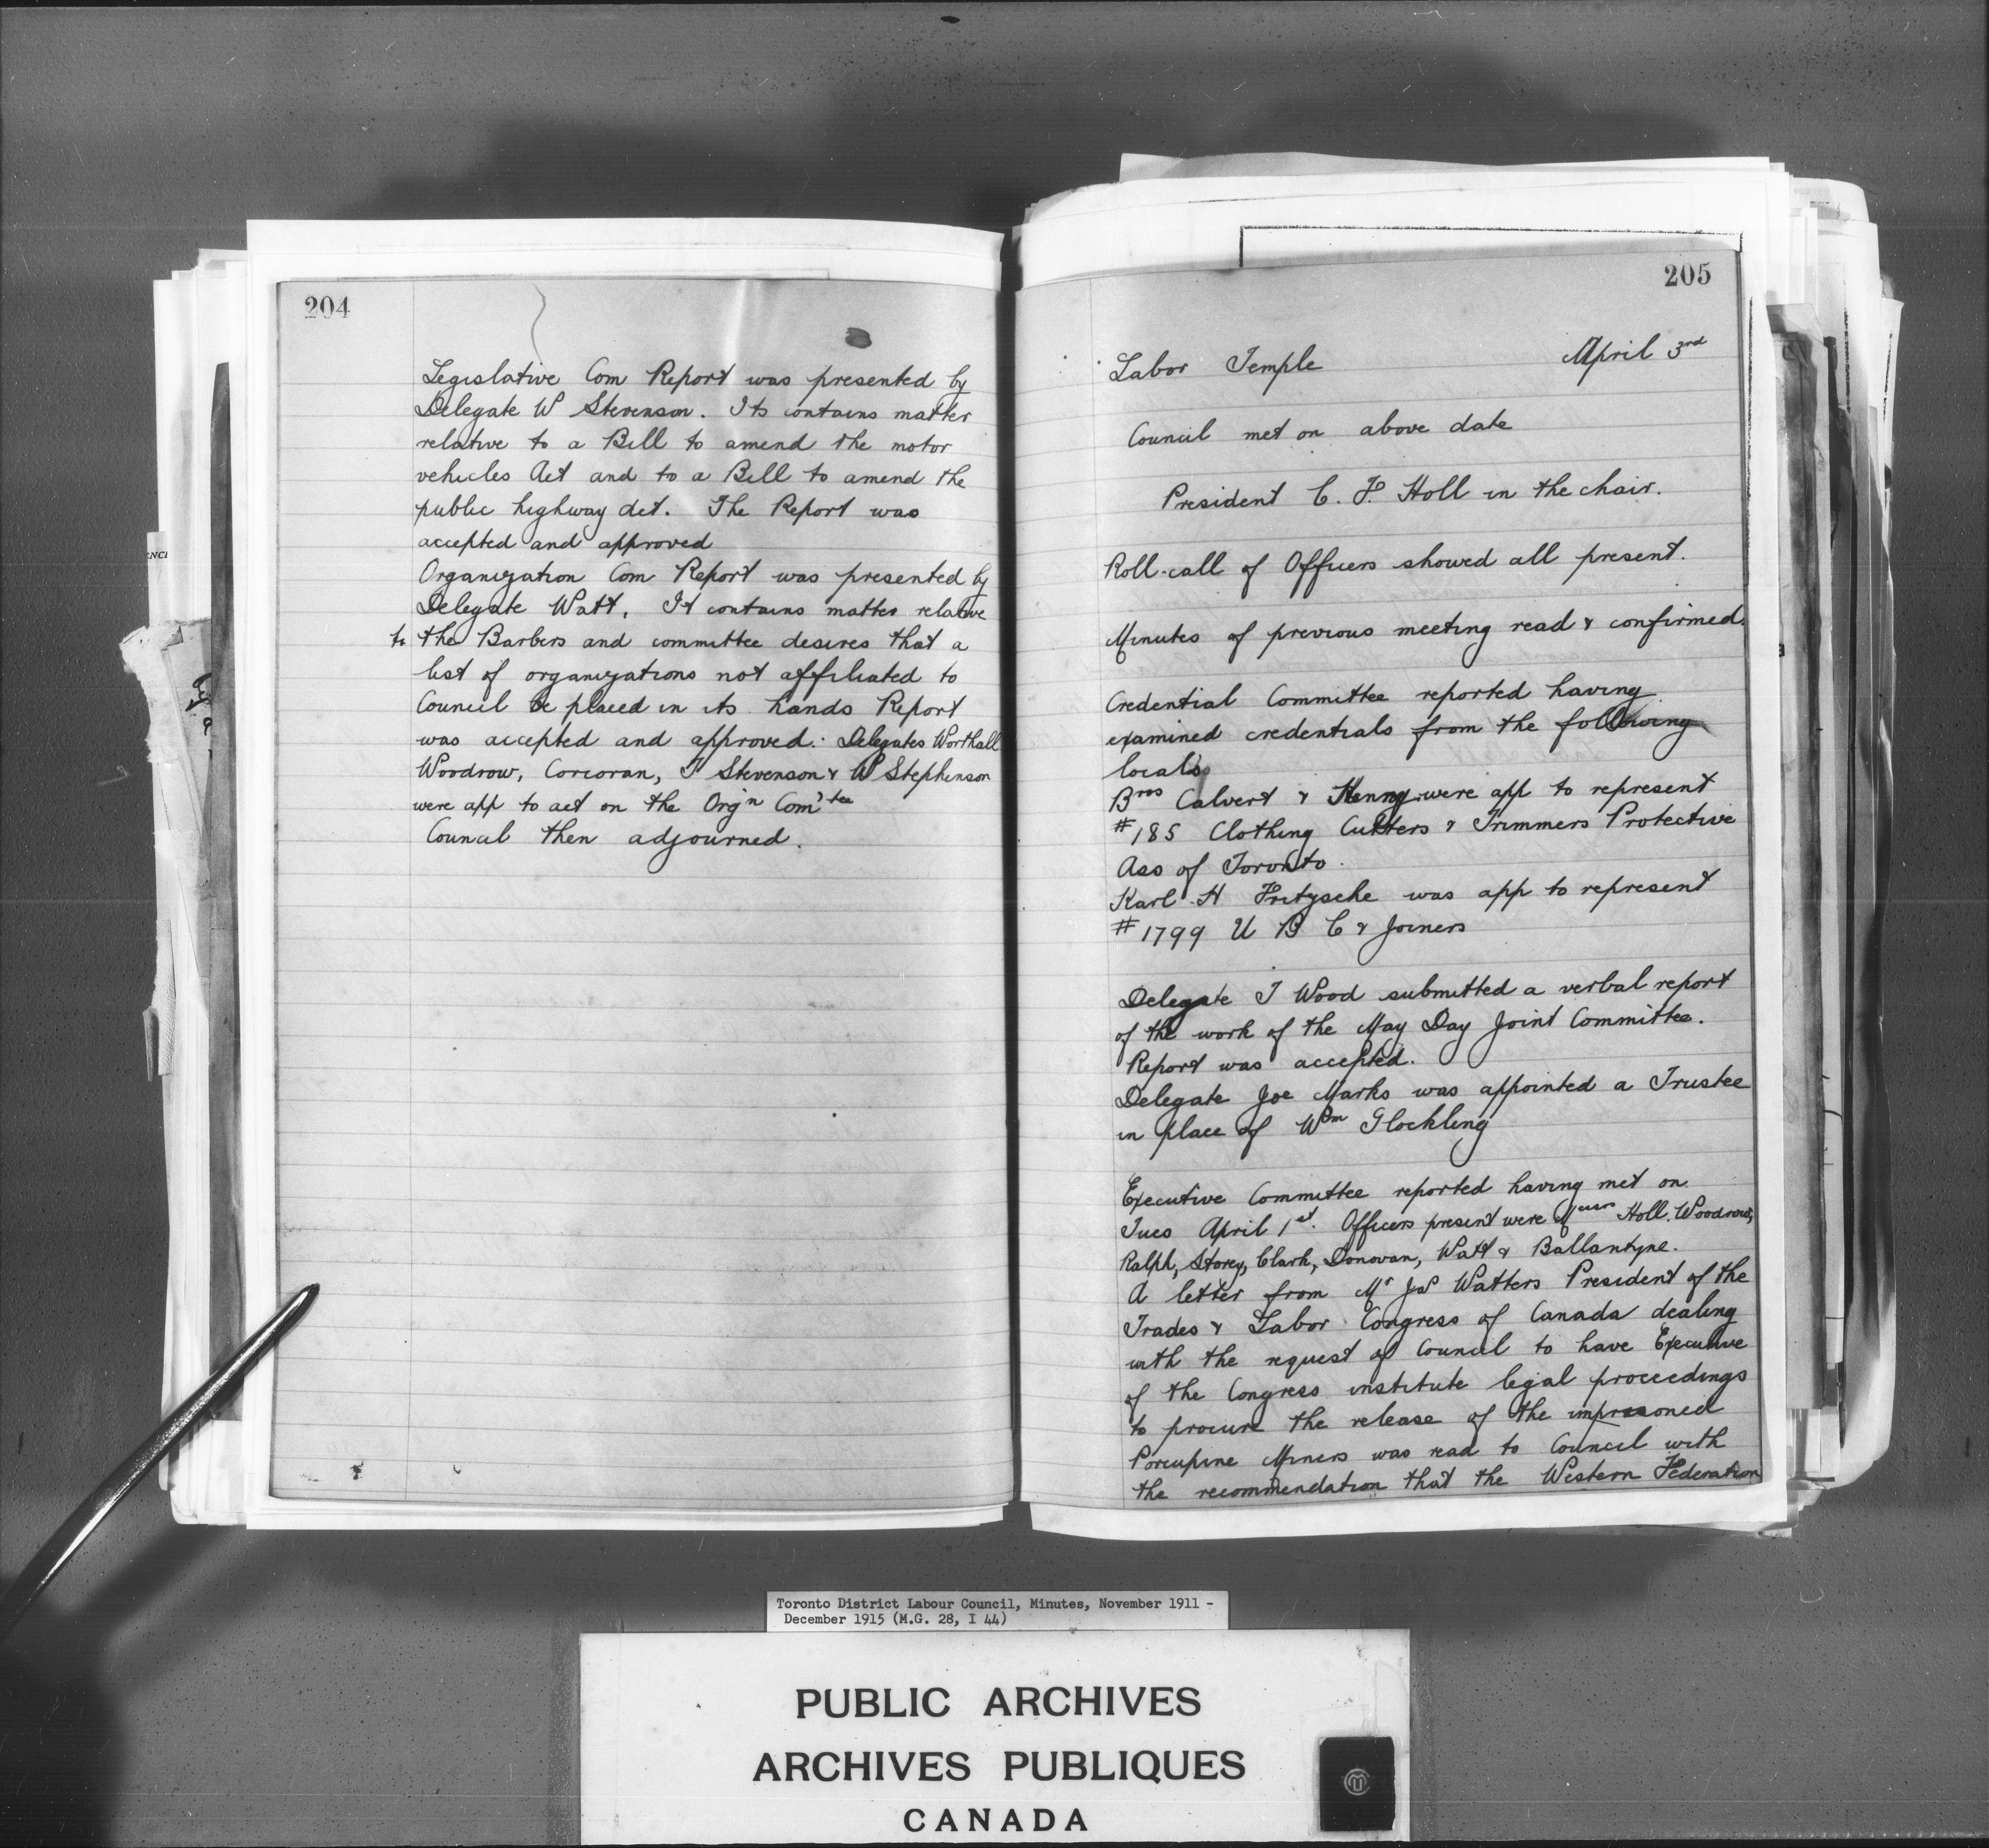 204
Legislative Com Report was presented by
Delegate W Stevenson. Its contains matter
relative to a Bill to amend the motor
vehicles Act and to a Bill to amend the
public highway Act. The Report was
accepted and approved
Organization Com Report was presented by
Delegate Watt. It contains matter relative
to the Barbers and committee desires that a
list of organizations not affiliated to
Council be placed in its hands Report
was accepted and approved. Delegates Worthall
Woodrow, Corcoran, J Stevenson & W Stephenson
were app to act on the Org'n Com'tee
Council then adjourned.
205
Labor Temple April 3rd
Council met on above date
President C. F. Holl in the chair.
Roll-call of Officers showed all present.
Minutes of previous meeting read & confirmed.
Credential Committee reported having
examined credentials from the following
locals
Bros Calvert & Kenny were app to represent
#185 Clothing Cutters & Trimmers Protective
Ass of Toronto.
Karl H Fritzsche was app to represent
#1799 U B C & Joiners
Delegate J Wood submitted a verbal report
of the work of the May Day Joint Committee.
Report was accepted.
Delegate Joe Marks was appointed a Trustee
in place of Wm Glockling
Executive Committee reported having met on
Tues April 1st. Officers present were Messrs Holl, Woodrow,
Ralph, Storey, Clark, Donovan, Watt & Ballantyne.
A letter from Mr Watters President of the
Trades & Labor Congress of Canada dealing
with the request of Council to have Executive
of the Congress institute legal proceedings
to procure the release of the imprisoned
Porcupine Miners was read to Council with
the recommendation that the Western Federation
Toronto District Labour Council, Minutes, November 1911 -
December 1915 (M.G. 28, I 44)
PUBLIC ARCHIVES
ARCHIVES PUBLIQUES
CANADA